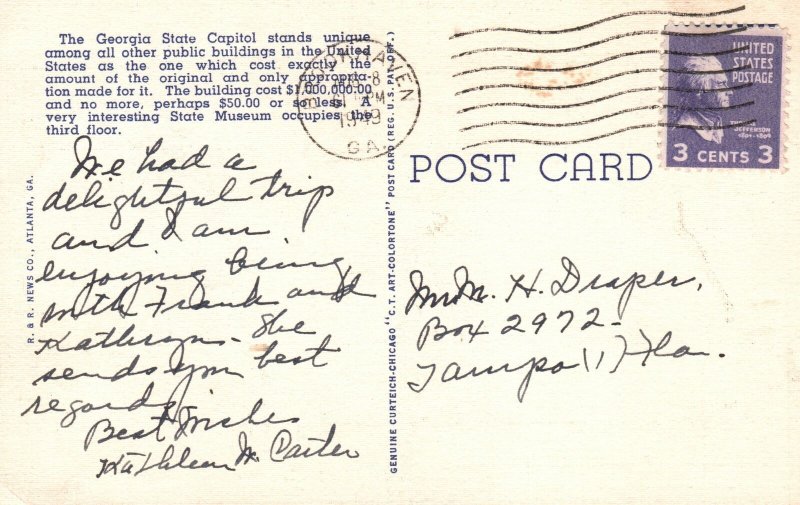 The Georgia State Capitol stands unique
among all other public buildings in the United
States as the one which cost exactly the
amount of the original and only appropria-
tion made for it. The building cost $1,000,000.00
and no more, perhaps $50.00 or so less. A
very interesting State Museum occupies the
third floor.
We had a
delightful trip
and I am
enjoying being
with Frank and
Kathryn - She
sends you best
regards.
Best Wishes
Kathleen W. Carter
R. & R. NEWS CO., ATLANTA, GA.
GENUINE CURTEICH-CHICAGO "C.T. ART-COLORTONE" POST CARD (REG. U.S. PAT. OFF.)
1949
GA.
POST CARD
UNITED
STATES
POSTAGE
JEFFERSON
1801-1809
3 CENTS 3
Mr. M. H. Draper,
Box 2972-
Tampa (1) Fla.